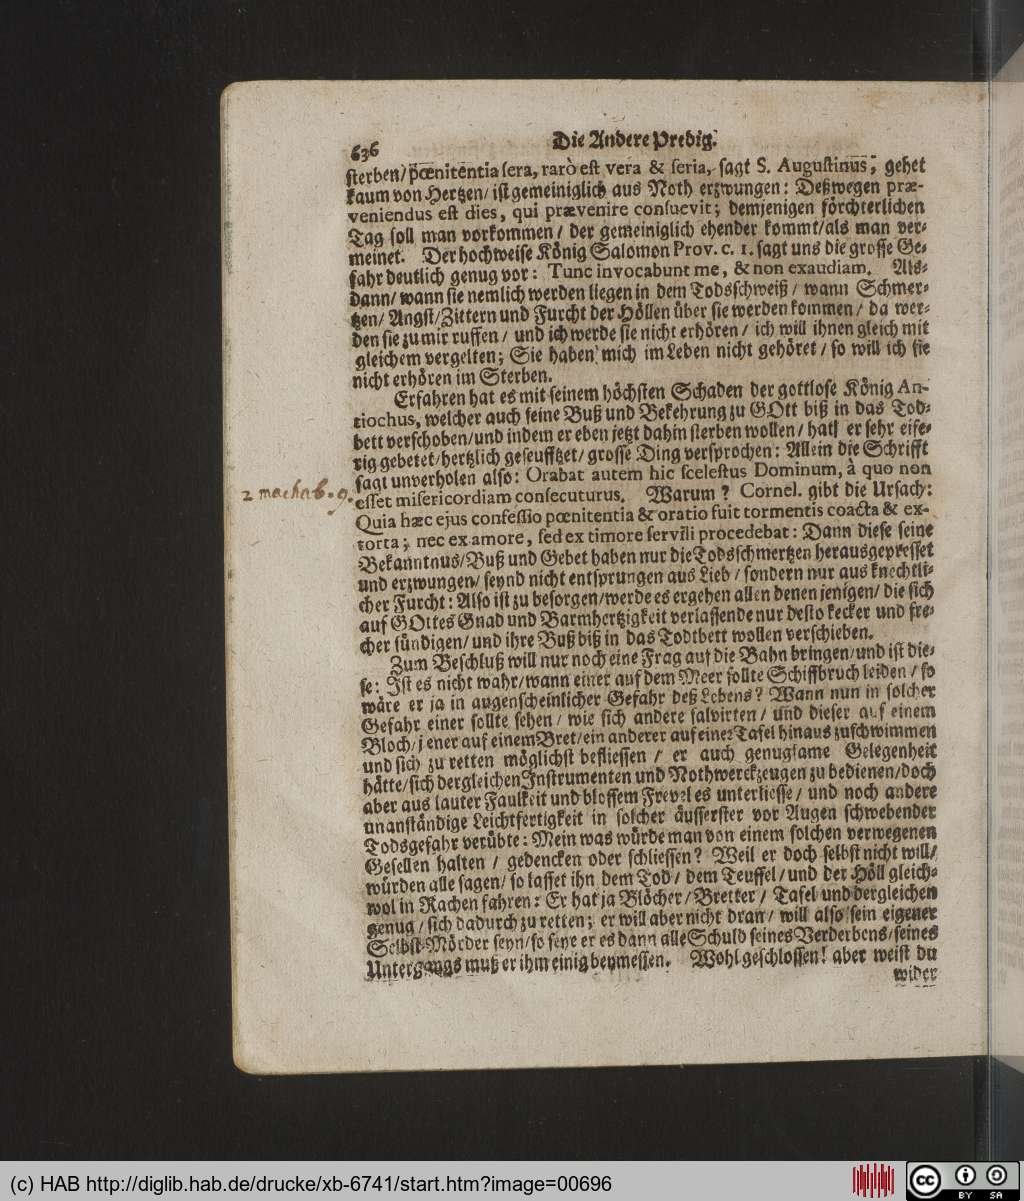 636 Die Andere Predig.
sterben/ pœnitentia sera, rarò est vera & seria, sagt S. Augustinus, gehet
kaum von Hertzen/ ist gemeiniglich aus Noth erzwungen: Deßwegen præ-
veniendus est dies, qui prævenire consuevit; demjenigen förchterlichen
Tag soll man vorkommen / der gemeiniglich ehender kommt/als man ver-
meinet. Der hochweise König Salomon Prov. c. 1. sagt uns die grosse Ge-
fahr deutlich genug vor: Tunc invocabunt me, & non exaudiam. Als-
dann/ wann sie nemlich werden liegen in dem Todsschweiß / wann Schmer-
tzen/ Angst/Zittern und Furcht der Höllen über sie werden kommen / da wer-
den sie zu mir ruffen / und ich werde sie nicht erhören / ich will ihnen gleich mit
gleichem vergelten; Sie haben mich im Leben nicht gehöret / so will ich sie
nicht erhören im Sterben.
Erfahren hat es mit seinem höchsten Schaden der gottlose König An-
tiochus, welcher auch seine Buß und Bekehrung zu GOtt biß in das Tod-
bett verschoben/und indem er eben jetzt dahin sterben wollen / hat er sehr eife-
rig gebetet/hertzlich geseufftzet/ grosse Ding versprochen: Allein die Schrifft
sagt unverholen also: Orabat autem hic scelestus Dominum, à quo non
2 machab. 9. esset misericordiam consecuturus. Warum? Cornel. gibt die Ursach:
Quia hæc ejus confessio pœnitentia & oratio fuit tormentis coacta & ex-
torta; nec ex amore, sed ex timore servili procedebat: Dann diese seine
Bekanntnus/Buß und Gebet haben nur die Todsschmertzen herausgepresset
und erzwungen/ seynd nicht entsprungen aus Lieb / sondern nur aus knechtli-
cher Furcht: Also ist zu besorgen/werde es ergehen allen denen jenigen/ die sich
auf GOttes Gnad und Barmhertzigkeit verlassende nur desto kecker und fre-
cher sündigen/ und ihre Buß biß in das Todtbett wollen verschieben.
Zum Beschluß will nur noch eine Frag auf die Bahn bringen/und ist die-
se: Ist es nicht wahr/wann einer auf dem Meer sollte Schiffbruch leiden / so
wäre er ja in augenscheinlicher Gefahr deß Lebens? Wann nun in solcher
Gefahr einer sollte sehen / wie sich andere salvirten / und dieser auf einem
Bloch/jener auf einem Bret/ein anderer auf einer Tafel hinaus zuschwimmen
und sich zu retten möglichst befliessen / er auch genugsame Gelegenheit
hätte/sich dergleichen Instrumenten und Nothwerckzeugen zu bedienen/doch
aber aus lauter Faulkeit und blossem Frevel es unterliesse / und noch andere
unanständige Leichtfertigkeit in solcher äusserster vor Augen schwebender
Todsgefahr verübte: Mein was würde man von einem solchen verwegenen
Gesellen halten / gedencken oder schliessen? Weil er doch selbst nicht will/
würden alle sagen/ so lasset ihn dem Tod / dem Teuffel / und der Höll gleich-
wol in Rachen fahren: Er hat ja Blöcher/ Bretter / Tafel und dergleichen
genug / sich dadurch zu retten; er will aber nicht dran/ will also sein eigener
Selbst-Mörder seyn/so seye er es dann alle Schuld seines Verderbens/seines
Untergangs muß er ihm einig beymessen. Wohl geschlossen! aber weist du
wider
(c) HAB http://diglib.hab.de/drucke/xb-6741/start.htm?image=00696
cc BY SA